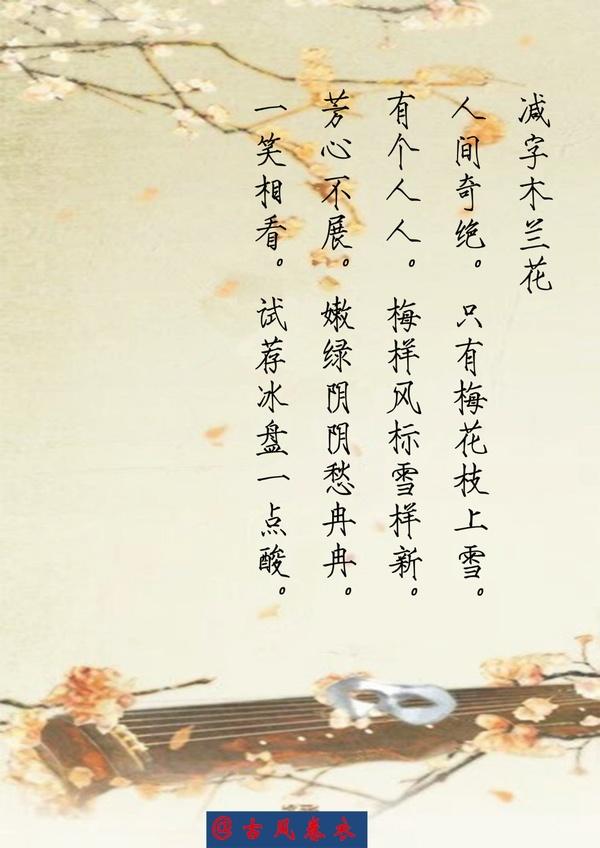 减字木兰花
人间奇绝。只有梅花枝上雪。
有个人人。梅样风标雪样新。
芳心不展。嫩绿阴阴愁冉冉。
一笑相看。试荐冰盘一点酸。
@古风卷衣